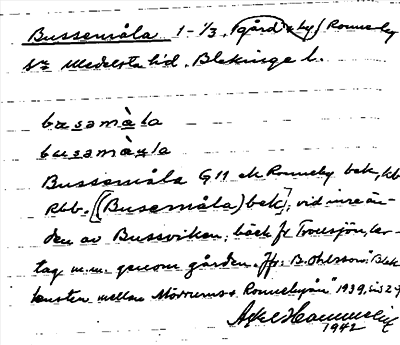 Bussemåla 1-1/3. gård, by, Ronneby
sn Medelsta hd. Blekinge l.
busəmàla
busəmàula
Bussemåla G11 ek Ronneby bek, kb
Rbb. [(Busemåla) bek], vid inre än-
den av Bussviken; bäck fr Tronsjön,
tag m.m. genom gården. Jfr. B. Ohlsson: "Blek
kusten mellan Mörrums- o Ronnebyån" 1939, s
Axel
1942